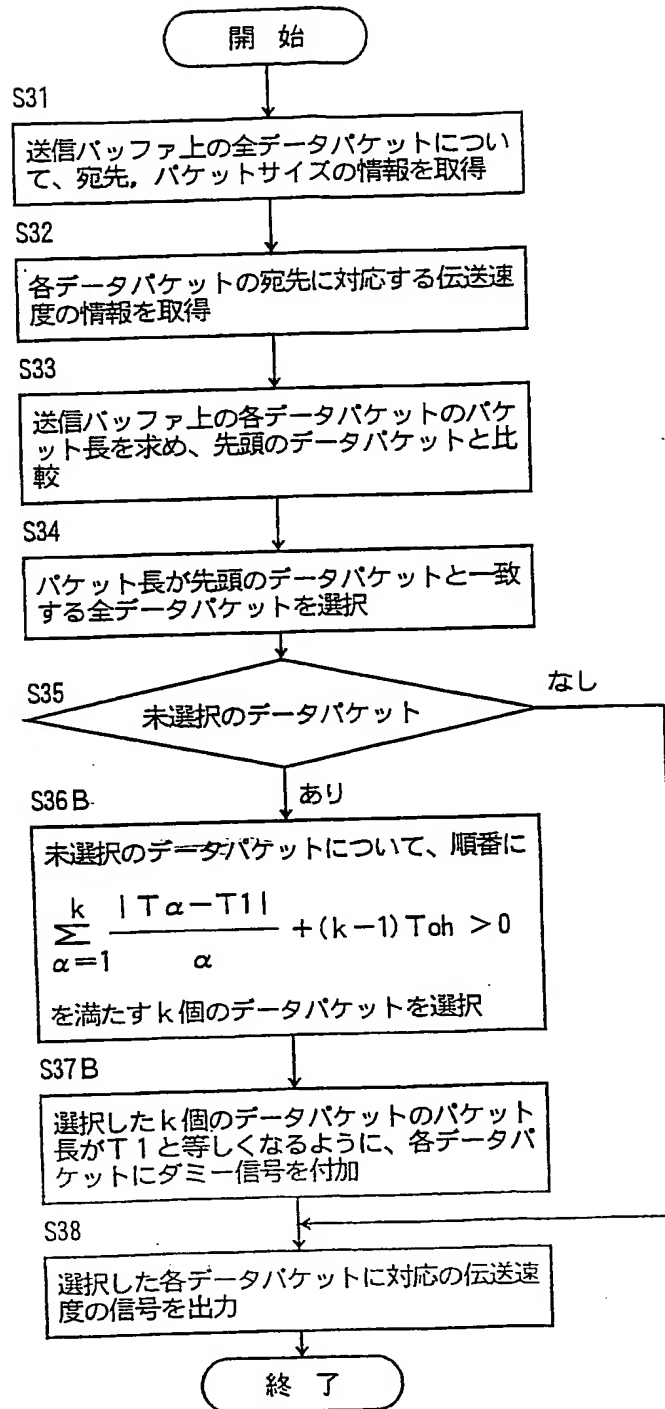 開 始
S31
送信バッファ上の全データパケットについ
て、宛先，パケットサイズの情報を取得
S32
各データパケットの宛先に対応する伝送速
度の情報を取得
S33
送信バッファ上の各データパケットのパケ
ット長を求め、先頭のデータパケットと比
較
S34
パケット長が先頭のデータパケットと一致
する全データパケットを選択
S35
未選択のデータパケット
なし
あり
S36B
未選択のデータパケットについて、順番に
k
Σ |Tα−T1| / α +(k−1)Toh >0
α=1
を満たすk個のデータパケットを選択
S37B
選択したk個のデータパケットのパケット
長がT1と等しくなるように、各データパ
ケットにダミー信号を付加
S38
選択した各データパケットに対応の伝送速
度の信号を出力
終 了